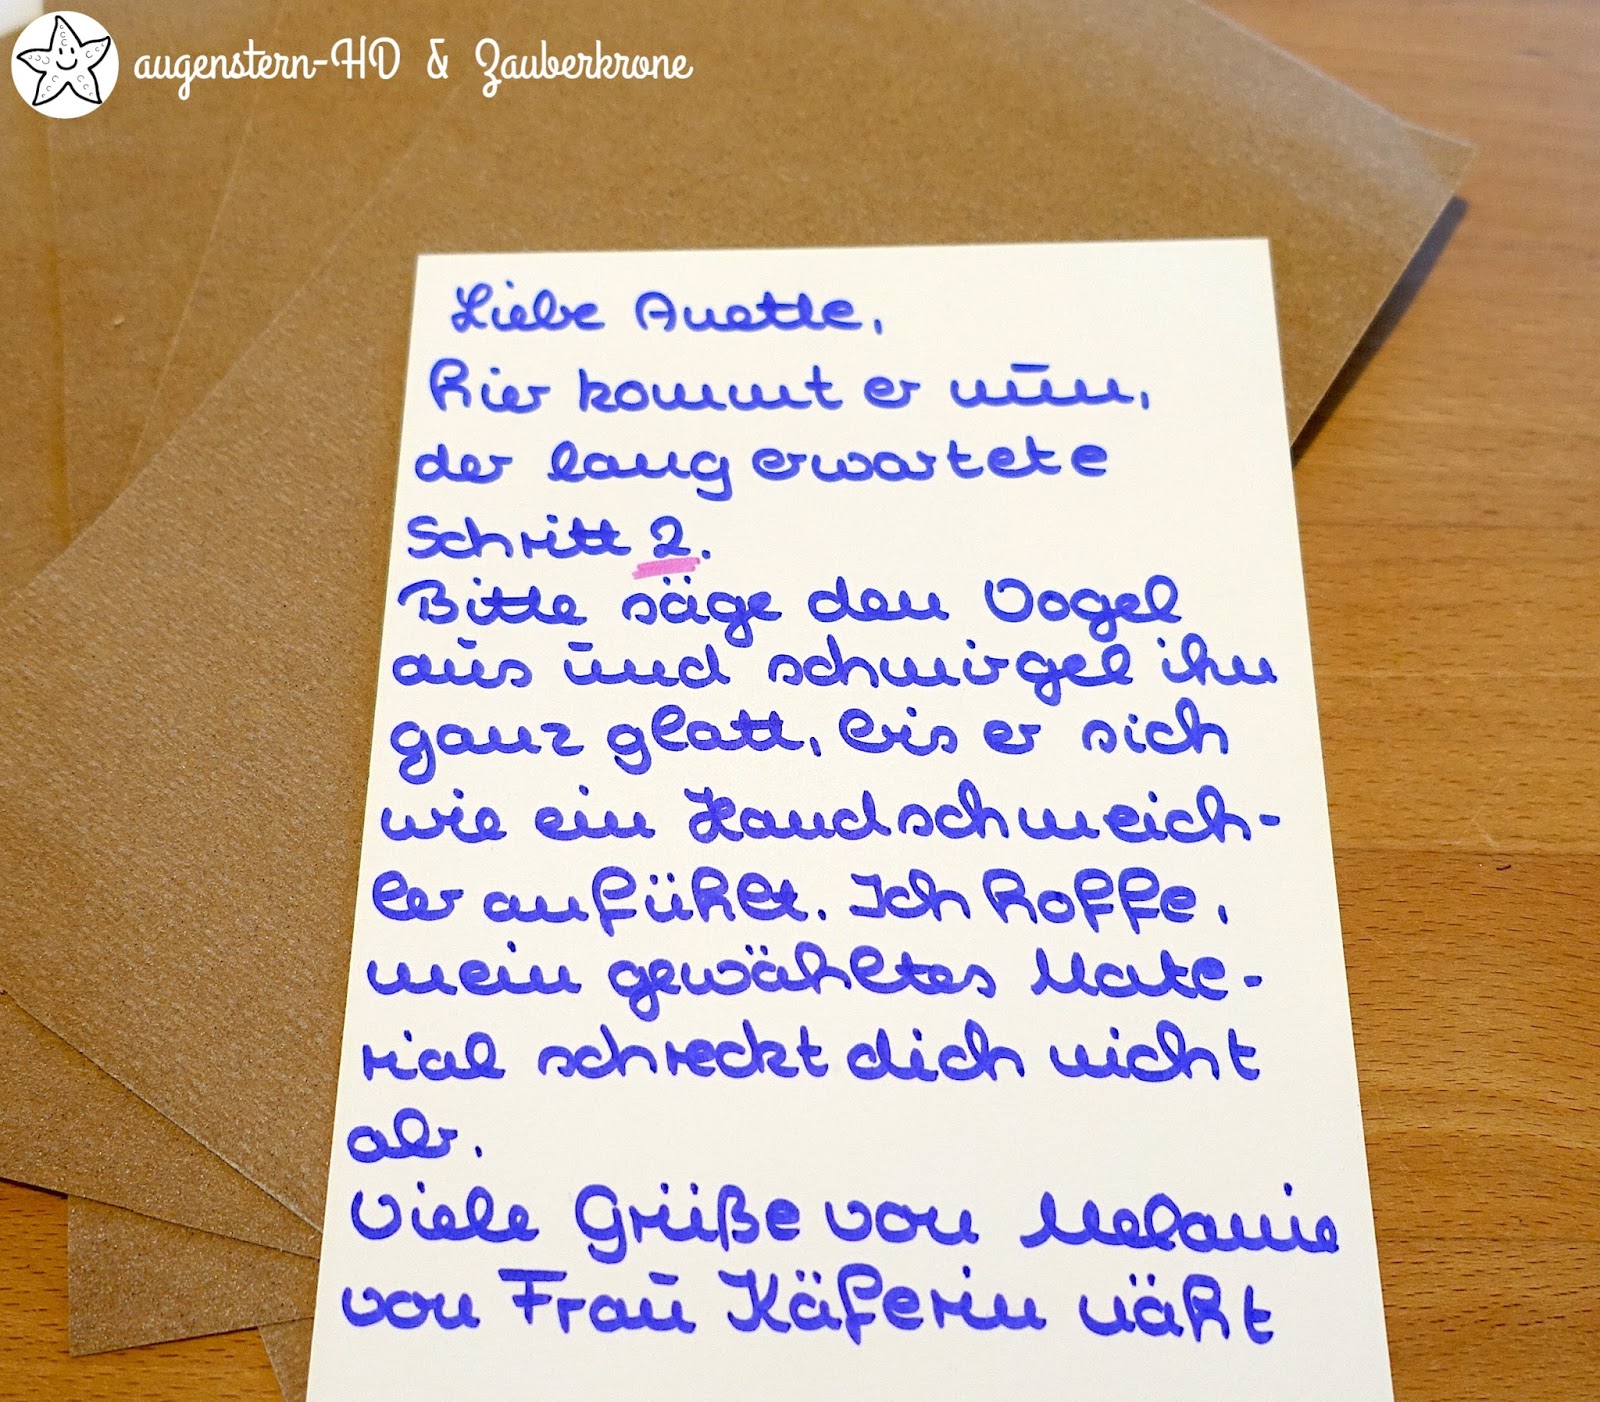 augenstern-HD & Zauberkrone
Liebe Anette,
hier kommt er nun,
der lang erwartete
Schritt 2.
Bitte säge den Vogel
aus und schmirgel ihn
ganz glatt, bis er sich
wie ein Handschmeich-
ler anfühlt. Ich hoffe,
mein gewähltes Mate-
rial schreckt dich nicht
ab.
Viele Grüße von Melanie
von Frau Käferin näht